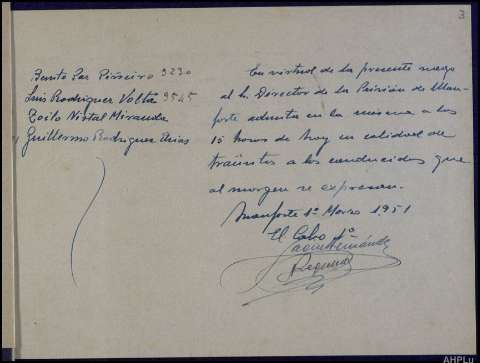 3
Benito Paz Piñeiro 9230
Luis Rodriguez Volta 9545
Zoilo Nistal Miranda
Guillermo Rodriguez Arias
En virtud de la presente ruego
al Sr. Director de la Prisión de Mon-
forte admita en la misma a las
15 horas de hoy en calidad de
transitos a los conducidos que
al margen se expresan.
Monforte 1º Marzo 1951
El Cabo 1º
Hernández
AHPLu